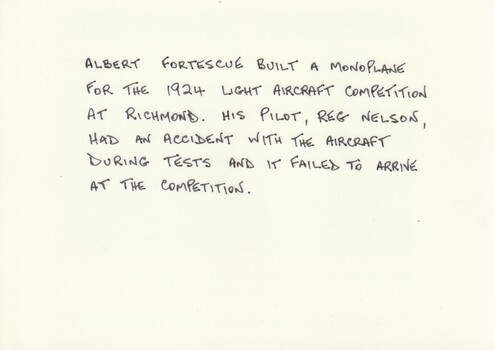 ALBERT FORTESCUE BUILT A MONOPLANE
FOR THE 1924 LIGHT AIRCRAFT COMPETITION
AT RICHMOND. HIS PILOT, REG NELSON,
HAD AN ACCIDENT WITH THE AIRCRAFT
DURING TESTS AND IT FAILED TO ARRIVE
AT THE COMPETITION.